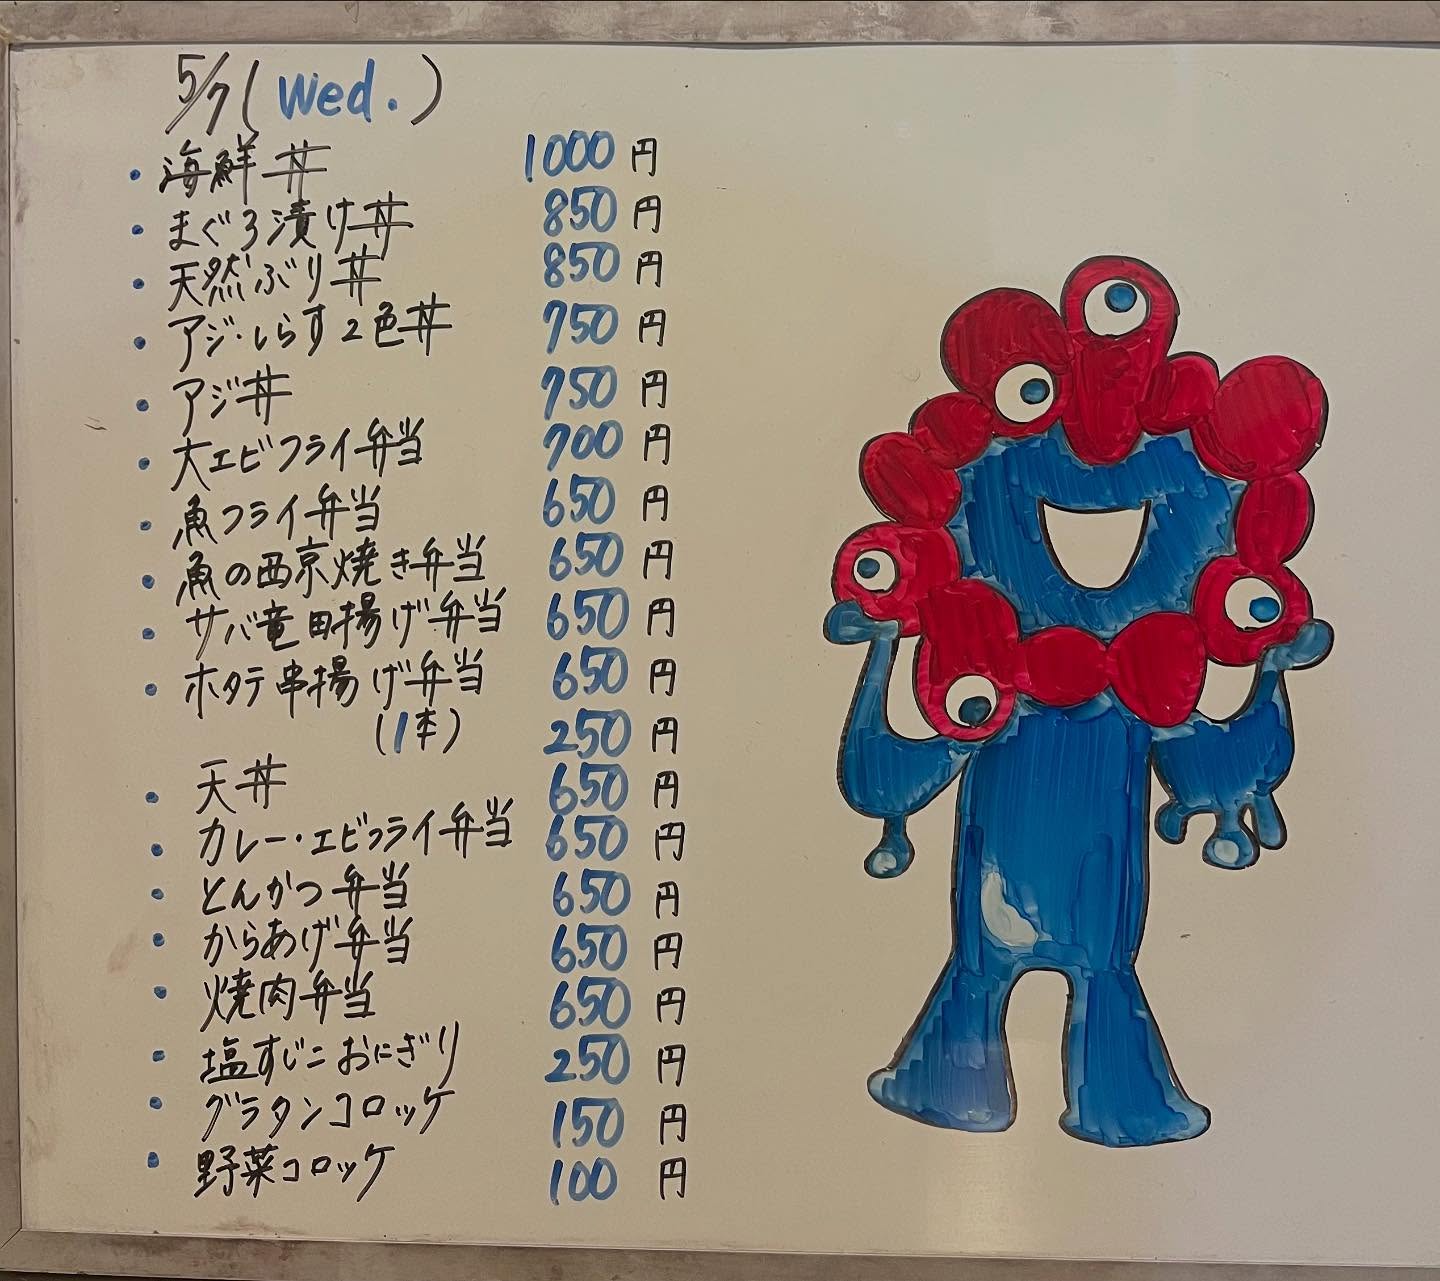 5/7(Wed.)
・海鮮丼 1000円
・まぐろ漬け丼 850円
・天然ぶり丼 850円
・アジ・しらす2色丼 750円
・アジ丼 750円
・大エビフライ弁当 700円
・魚フライ弁当 650円
・魚の西京焼き弁当 650円
・サバ竜田揚げ弁当 650円
・ホタテ串揚げ弁当 650円
(1本) 250円
・天丼 650円
・カレー・エビフライ弁当 650円
・とんかつ弁当 650円
・からあげ弁当 650円
・焼肉弁当 650円
・塩すじこおにぎり 250円
・グラタンコロッケ 150円
・野菜コロッケ 100円